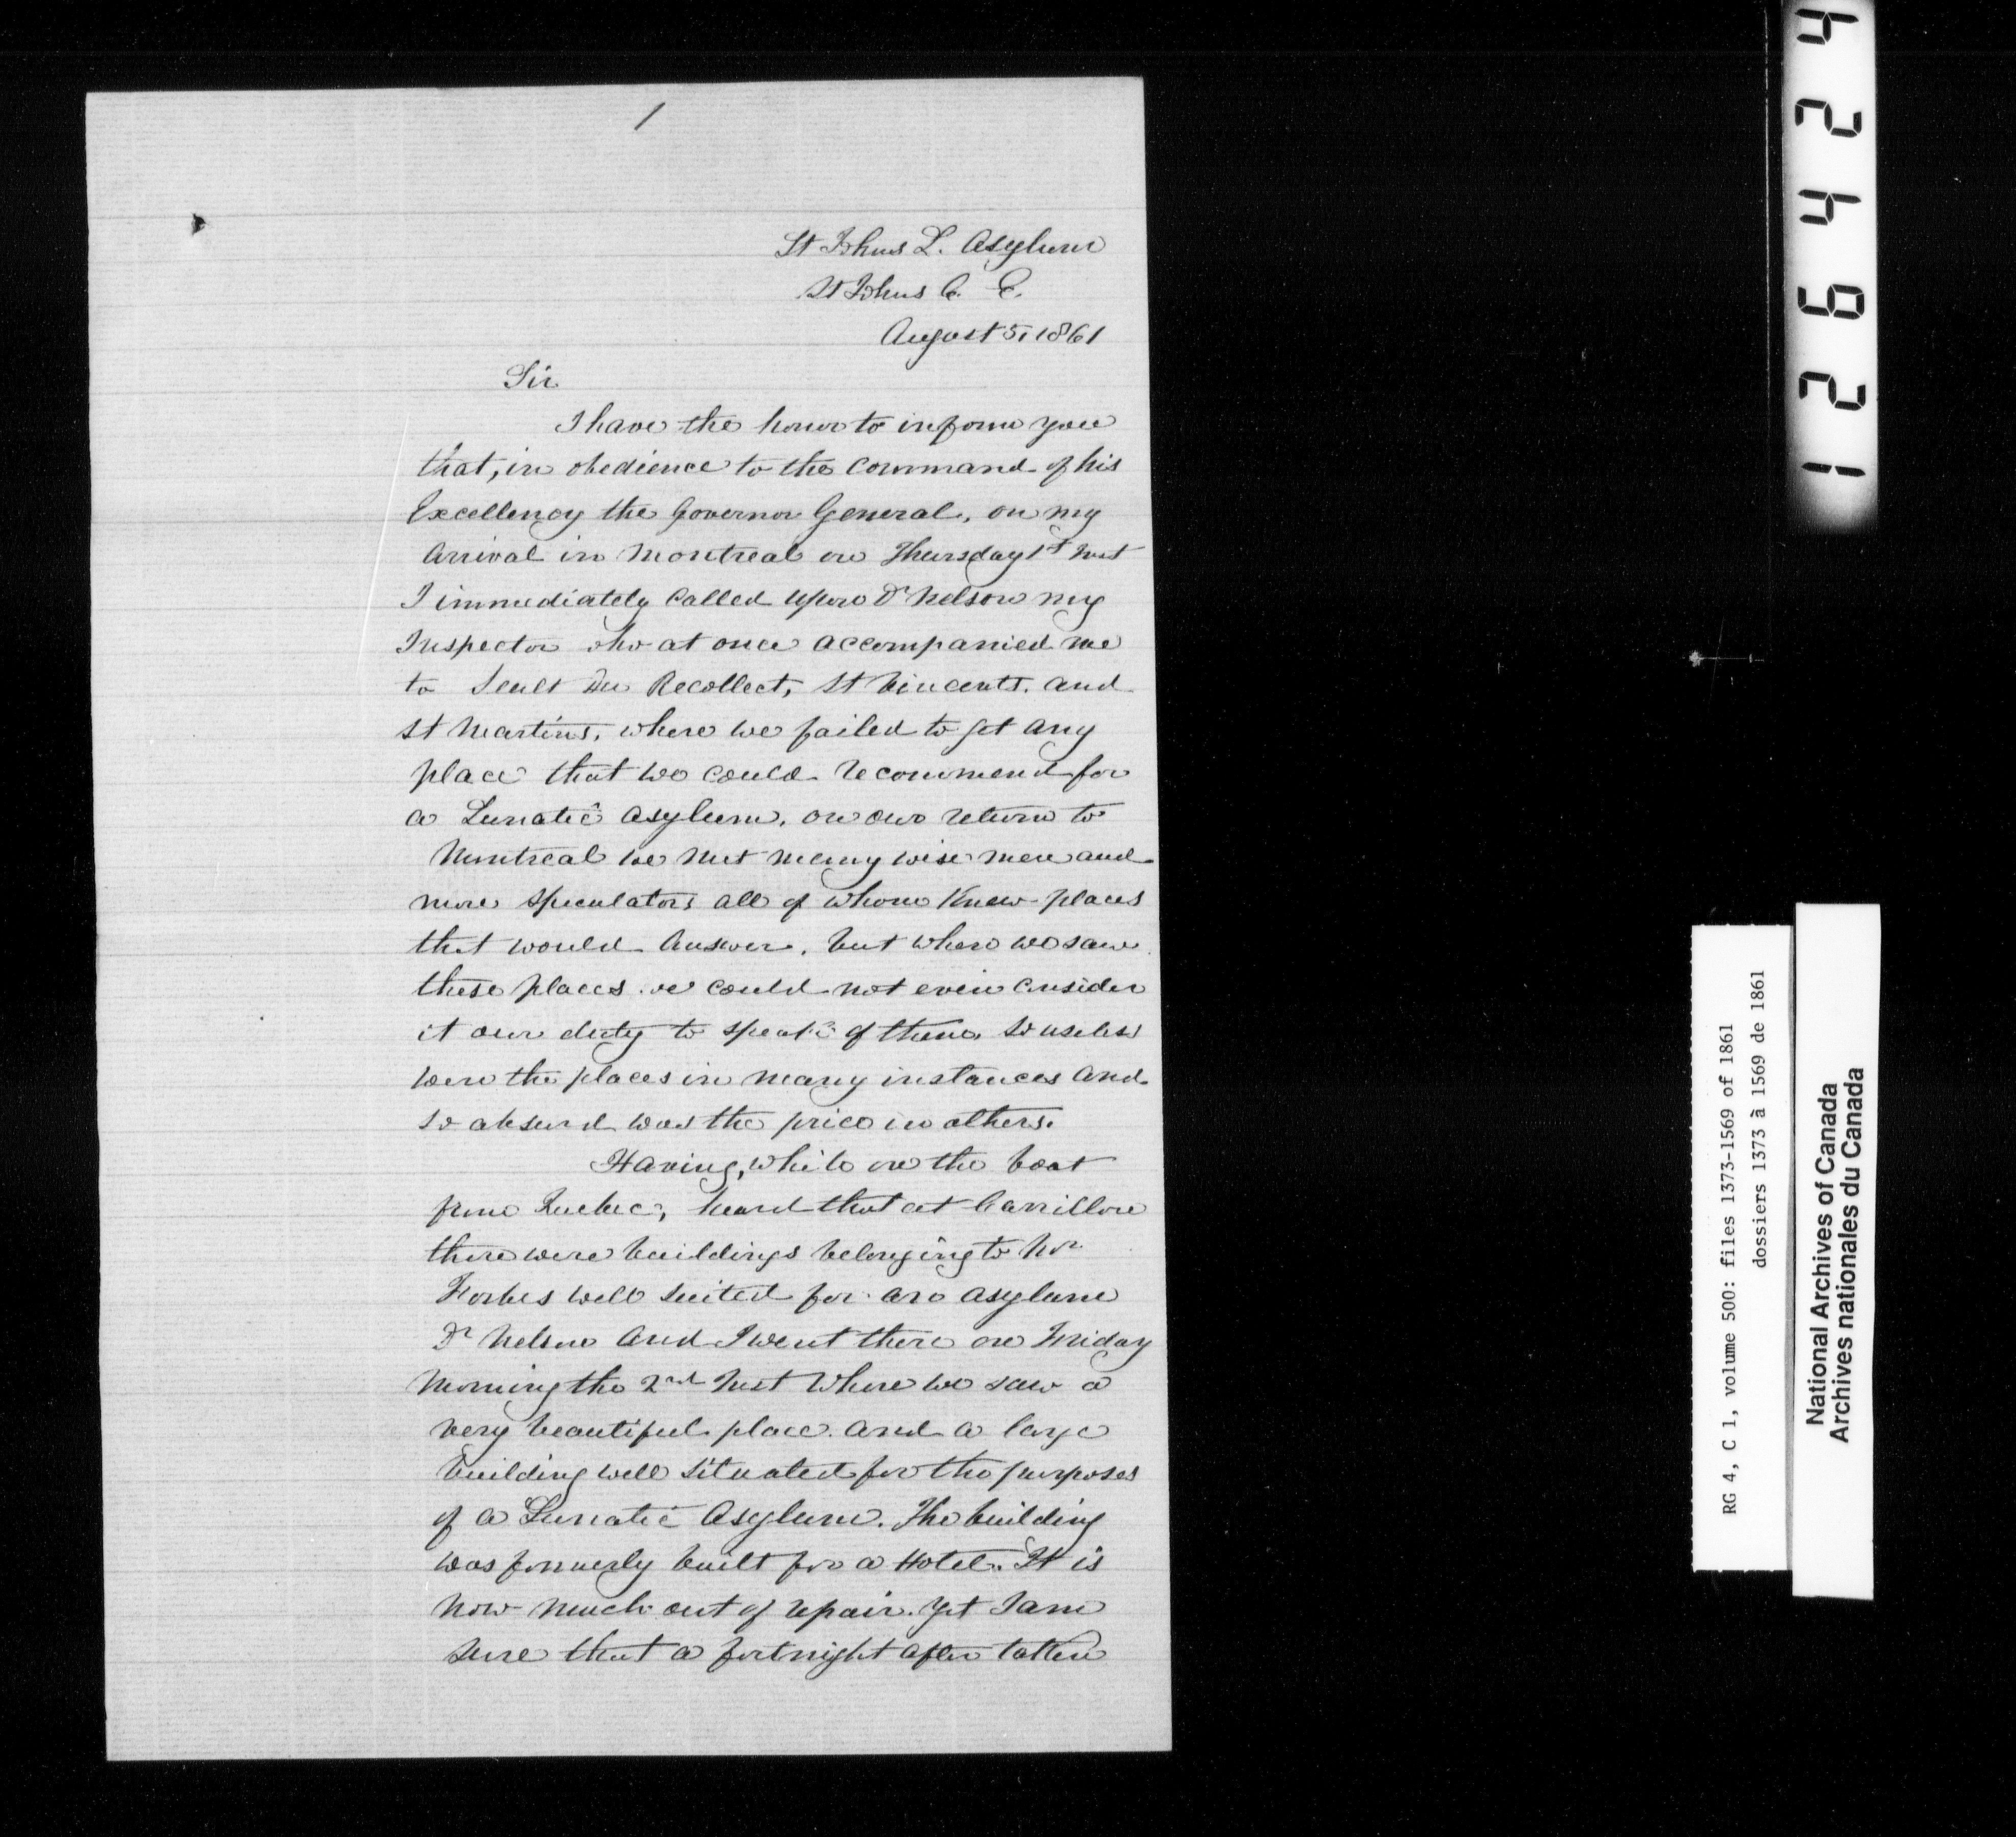 1
St Johns L. Asylum
St Johns C. E.
August 5, 1861
Sir
I have the honor to inform you
that, in obedience to the command of his
Excellency the Governor General, on my
arrival in Montreal on Thursday 1st Inst
I immediately called upon Dr Nelson my
Inspector who at once accompanied me
to Sault Du Recollect, St Vincents, and
St Martins, where we failed to get any
place that we could recommend for
a Lunatic Asylum. on our return to
Montreal we met many wise men and
more speculators all of whom knew places
that would answer. but when we saw
these places we could not even consider
it our duty to speak of them, so useless
were the places in many instances and
so absurd was the price in others.
Having, while on the boat
from Quebec, heard that at Carrillon
there were buildings belonging to Mr
Forbes well suited for an asylum
Dr Nelson and I went there on Friday
Morning the 2nd Inst where we saw a
very beautiful place. and a large
building well situated for the purposes
of a Lunatic Asylum. The building
was formerly built for a Hotel. It is
now much out of repair. yet I am
sure that a fortnight after taken
126424
RG 4, C 1, volume 500: files 1373-1569 of 1861
dossiers 1373 à 1569 de 1861
National Archives of Canada
Archives nationales du Canada